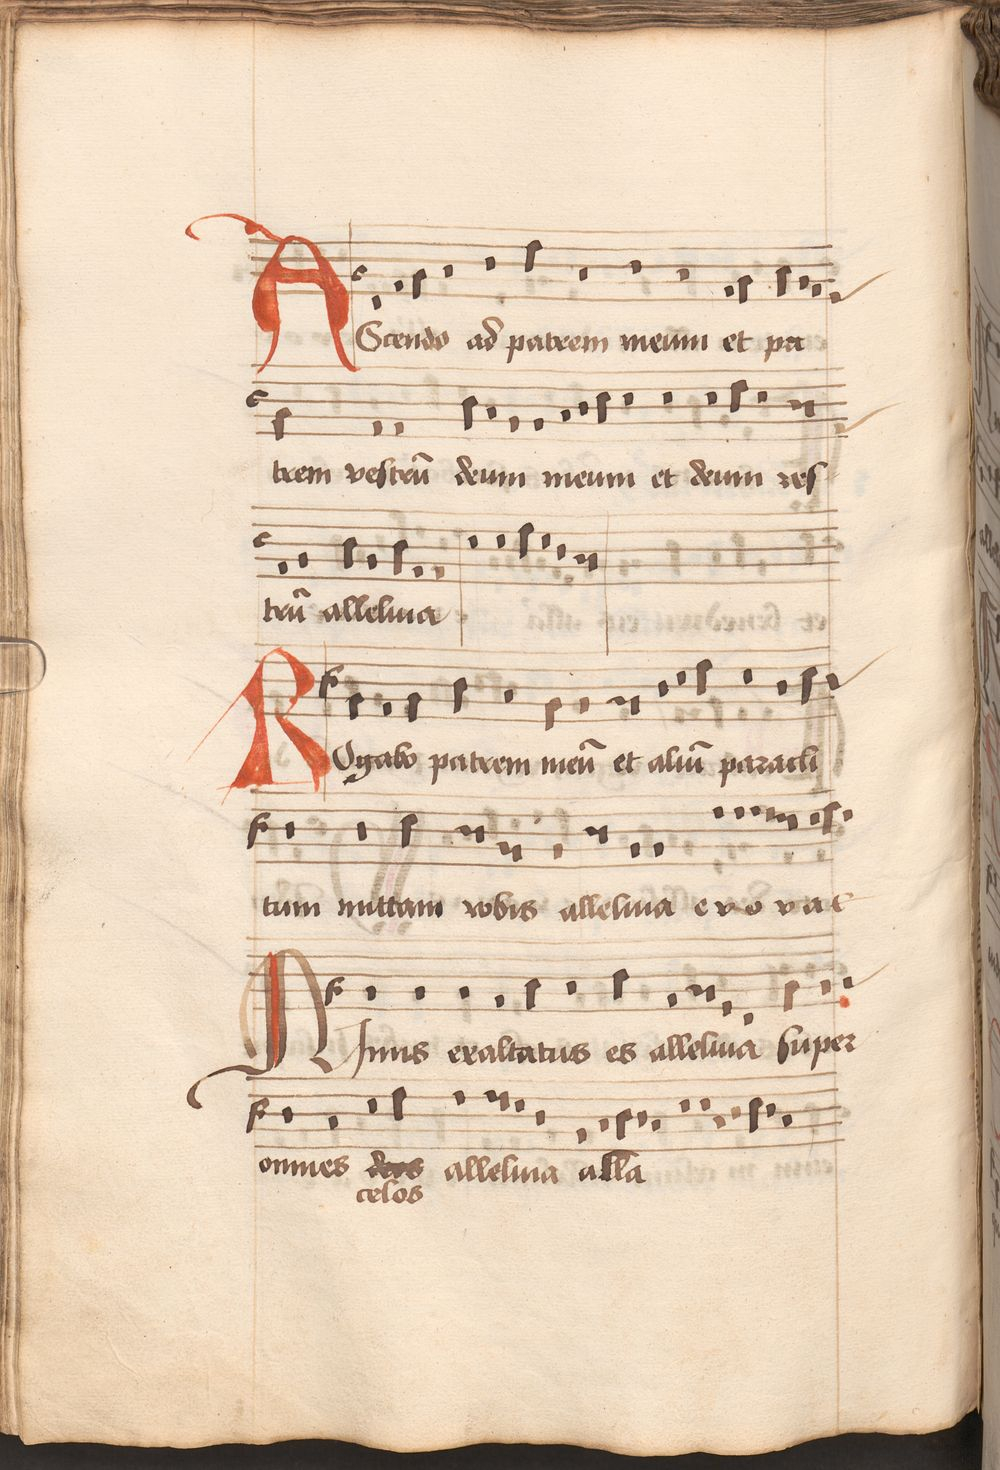 AScendo ad patrem meum et pa
trem vestrū deum meum et deum ves
trū alleluia
ROgabo patrem meū et aliū paracli
tum mittam vobis alleluia e v o v a e
Nimis exaltatus es alleluia super
omnes deos alleluia alla
celos